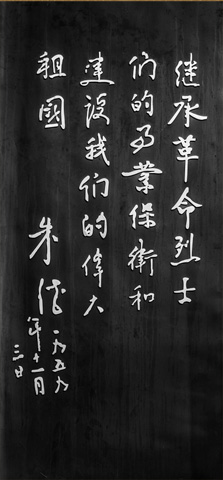 继承革命烈士
们的事業保衛和
建設我们的偉大
祖國
朱德
一九五九
年十一月
三日